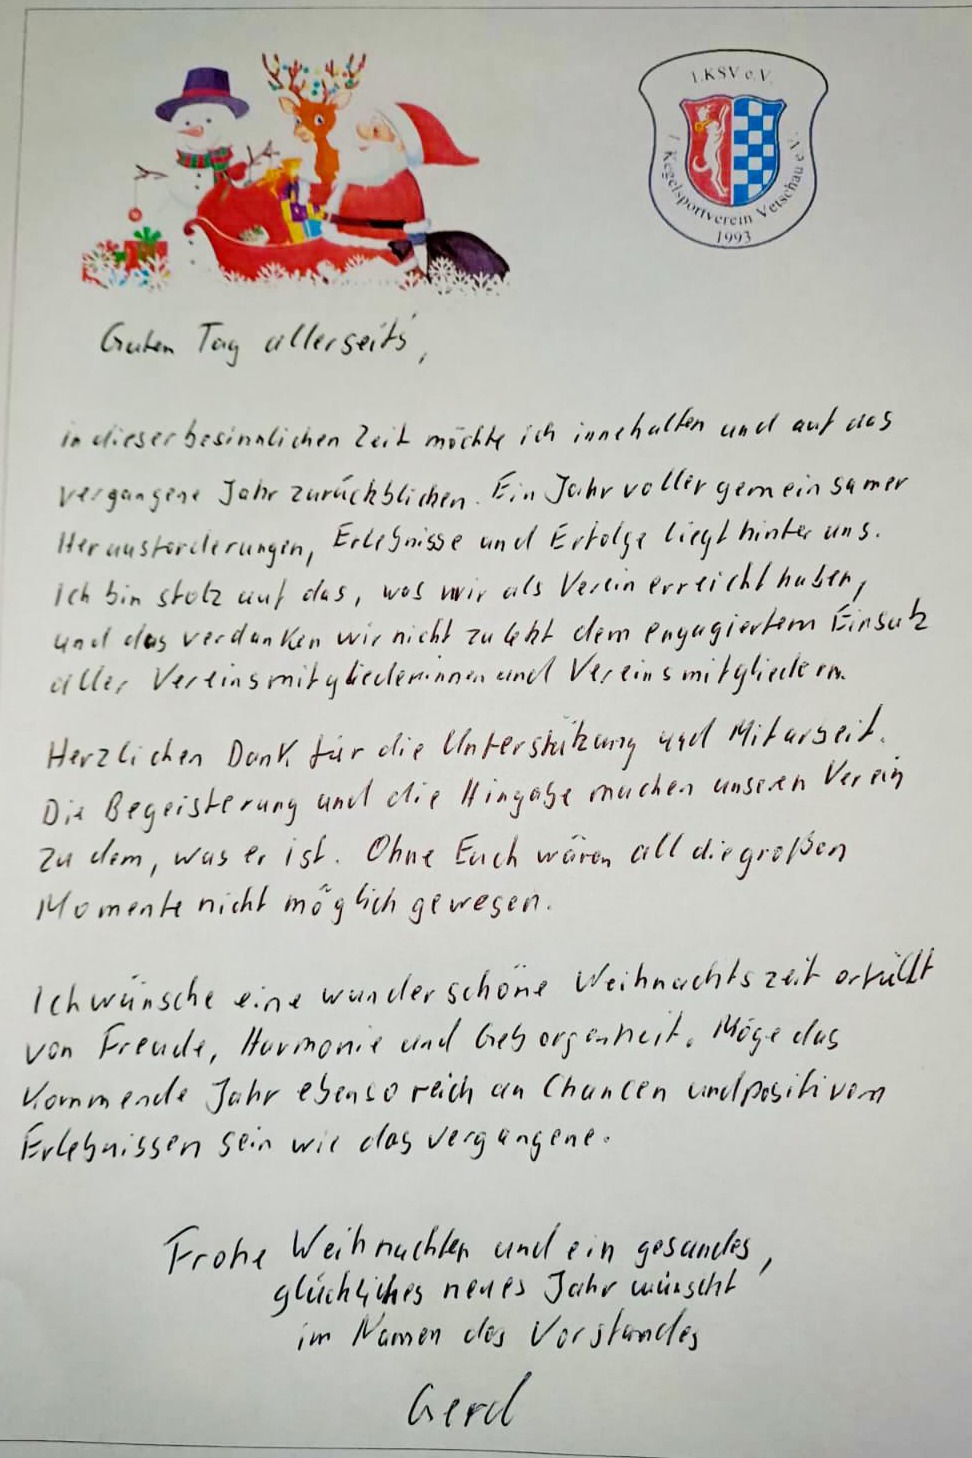 1.KSV e.V.
1. Kegelsportverein Vetschau e.V.
1993
Guten Tag allerseits,
in dieser besinnlichen Zeit möchte ich innehalten und auf das
vergangene Jahr zurückblicken. Ein Jahr voller gemeinsamer
Herausforderungen, Erlebnisse und Erfolge liegt hinter uns.
Ich bin stolz auf das, was wir als Verein erreicht haben,
und das verdanken wir nicht zuletzt dem engagiertem Einsatz
aller Vereinsmitgliederinnen und Vereinsmitgliedern.
Herzlichen Dank für die Unterstützung und Mitarbeit.
Die Begeisterung und die Hingabe machen unseren Verein
zu dem, was er ist. Ohne Euch wären all die großen
Momente nicht möglich gewesen.
Ich wünsche eine wunderschöne Weihnachtszeit erfüllt
von Freude, Harmonie und Geborgenheit. Möge das
kommende Jahr ebenso reich an Chancen und positiven
Erlebnissen sein wie das vergangene.
Frohe Weihnachten und ein gesundes,
glückliches neues Jahr wünscht
im Namen des Vorstandes
Gerd